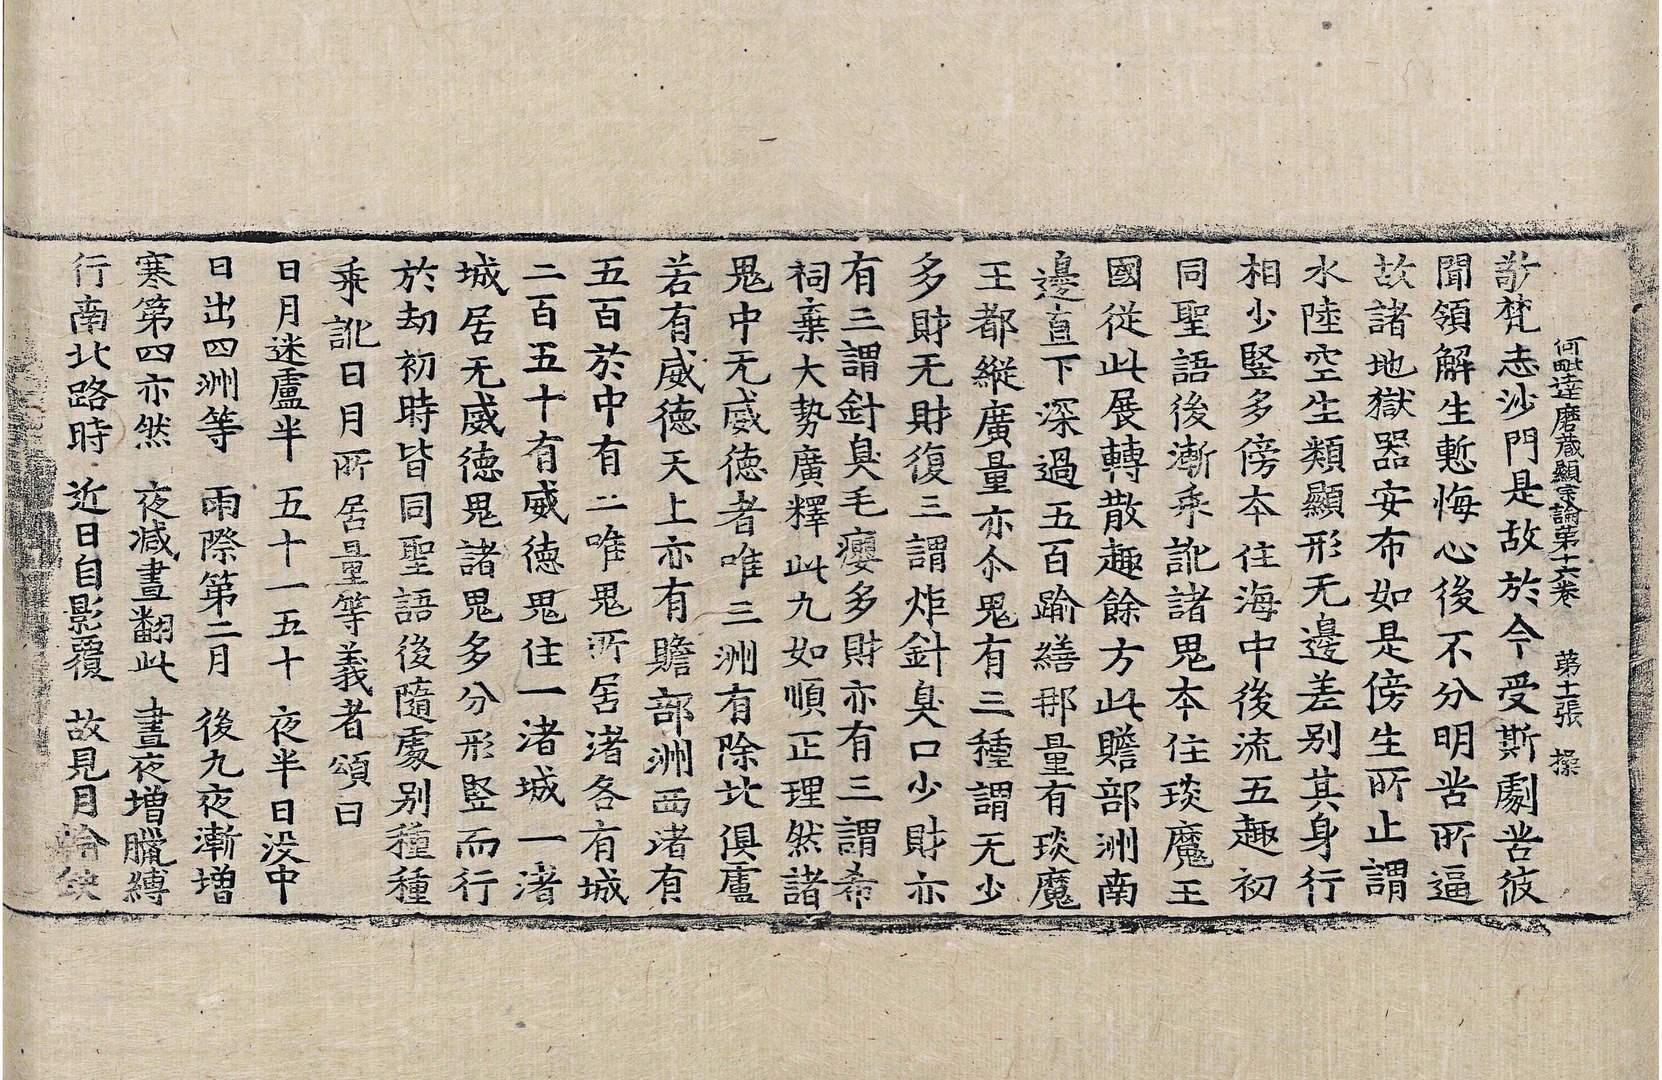 阿毗達磨藏顯宗論第十六卷 第十二張 操
敬梵志沙門是故於今受斯劇苦彼
聞領解生慙悔心後不分明苦所逼
故諸地獄器安布如是傍生所止謂
水陸空生類顯形无邊差别其身行
相少竪多傍本住海中後流五趣初
同聖語後漸乖訛諸鬼本住琰魔王
國從此展轉散趣餘方此贍部洲南
邊直下深過五百踰繕那量有琰魔
王都縱廣量亦尒鬼有三種謂无少
多財无財復三謂炬針臭口少財亦
有三謂針臭毛癭多財亦有三謂希
祠棄大勢廣釋此九如順正理然諸
鬼中无威德者唯三洲有除北俱盧
若有威德天上亦有贍部洲西渚有
五百於中有二唯鬼所居渚各有城
二百五十有威德鬼住一渚城一渚
城居无威德鬼諸鬼多分形竪而行
於劫初時皆同聖語後隨處别種種
乖訛日月所居量等義者頌曰
日月迷盧半 五十一五十 夜半日没中
日出四洲等 雨際第二月 後九夜漸增
寒第四亦然 夜減晝翻此 晝夜增臘縛
行南北路時 近日自影覆 故見月輪缺